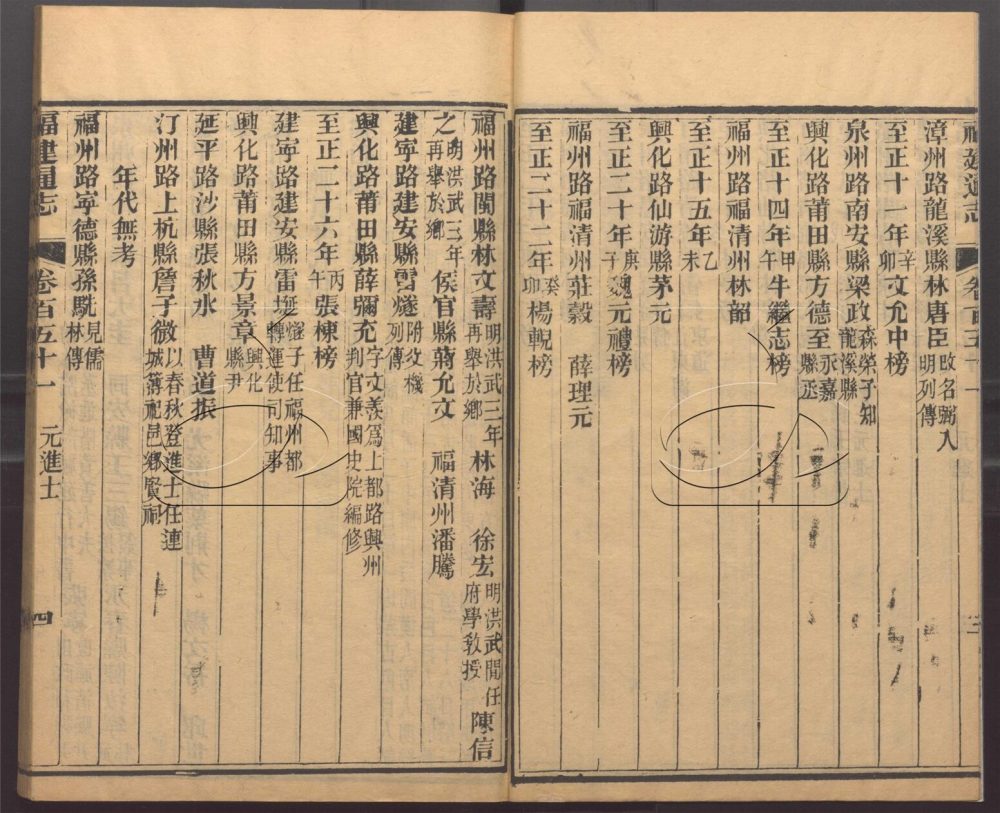 福建通志 卷百五十一 三
漳州路龍溪縣林唐臣改名弼入明列傳
至正十一年辛卯文允中榜
泉州路南安縣梁政森榮子知龍溪縣
興化路莆田縣方德至永嘉縣丞
至正十四年甲午牛繼志榜
福州路福清州林韶
至正十五年乙未
興化路仙游縣茅元
至正二十年庚子魏元禮榜
福州路福清州莊穀 薛理元
至正二十二年癸卯楊輗榜
福州路閩縣林文壽明洪武三年再舉於鄉林海 徐宏明洪武閒任府學教授陳信
之明洪武三年再舉於鄉侯官縣蔣允文 福清州潘騰
建寧路建安縣雷燧附文機列傳
興化路莆田縣薛彌充字文羨爲上都路興州判官兼國史院編修
至正二十六年丙午張棟榜
建寧路建安縣雷埏燧子任福州都轉運使司知事
興化路莆田縣方景章興化縣尹
延平路沙縣張秋水 曹道振
汀州路上杭縣詹子微以春秋登進士任連城簿祀邑鄉賢祠
年代無考
福州路寧德縣孫駪見儒林傳
福建通志 卷百五十一 元進士 四